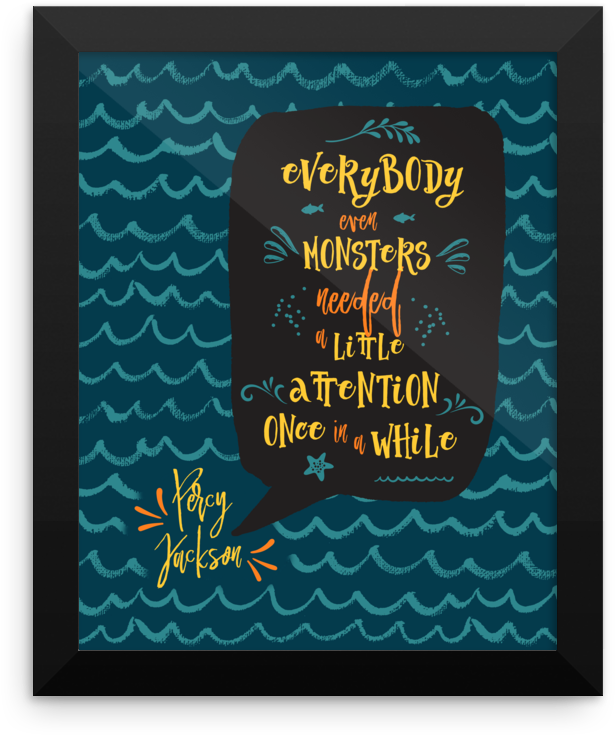 everybody
even
MONSTERS
needed
a little
attention
once in a while
Percy
Jackson